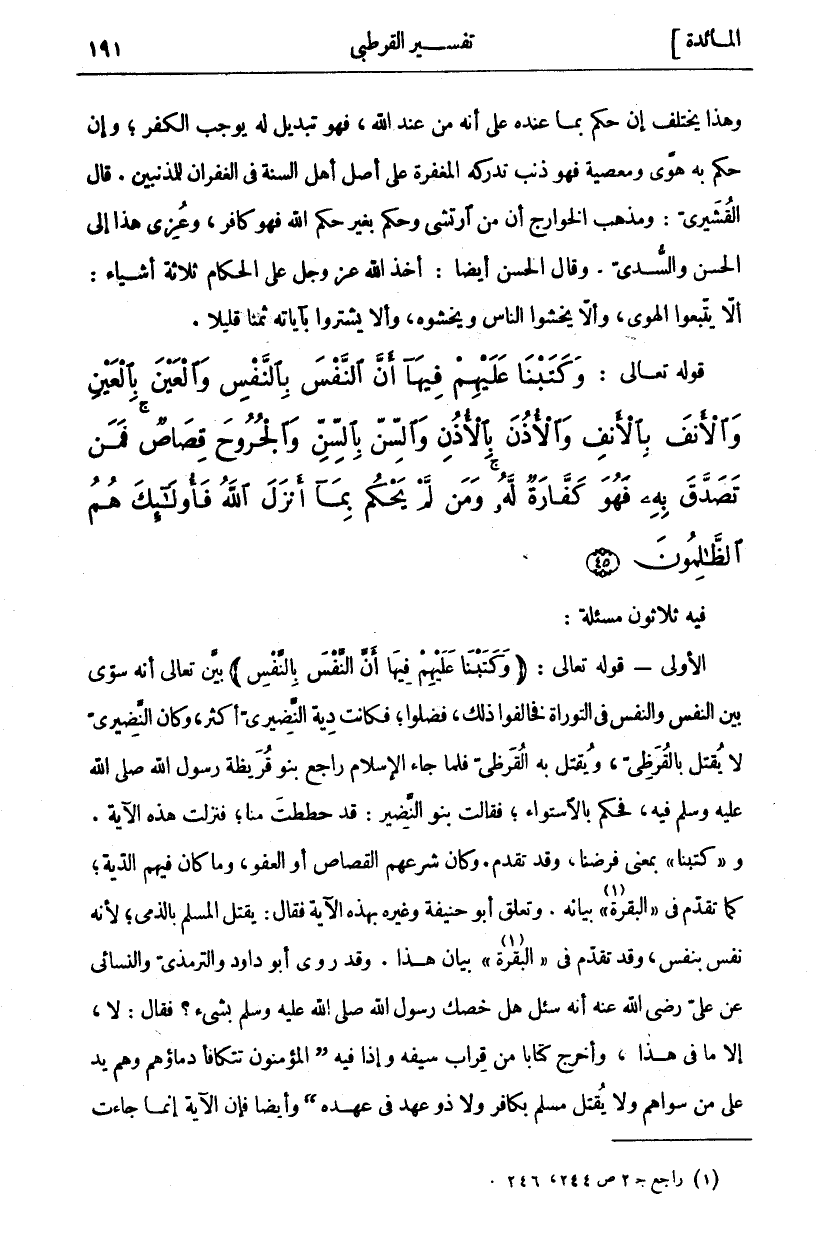 المائدة ] تفسير القرطبى ١٩١
وهذا يختلف إن حكم بما عنده على أنه من عند الله ، فهو تبديل له يوجب الكفر ؛ وإن
حكم به هوًى ومعصية فهو ذنب تدركه المغفرة على أصل أهل السنة فى الغفران للمذنبين . قال
القُشَيرىّ : ومذهب الخوارج أن من آرتشى وحكم بغير حكم الله فهو كافر ، وعُزِى هذا إلى
الحسن والسُّدىّ . وقال الحسن أيضا : أخذ الله عز وجل على الحكام ثلاثة أشياء :
ألّا يتّبعوا الهوى ، وألّا يخشوا الناس ويخشوه ، وألا يشتروا بآياته ثمنا قليلا .
قوله تعالى : وَكَتَبْنَا عَلَيْهِمْ فِيهَآ أَنَّ ٱلنَّفْسَ بِٱلنَّفْسِ وَٱلْعَيْنَ بِٱلْعَيْنِ
وَٱلْأَنفَ بِٱلْأَنفِ وَٱلْأُذُنَ بِٱلْأُذُنِ وَٱلسِّنَّ بِٱلسِّنِّ وَٱلْجُرُوحَ قِصَاصٌ ۚ فَمَن
تَصَدَّقَ بِهِۦ فَهُوَ كَفَّارَةٌ لَّهُۥ ۚ وَمَن لَّمْ يَحْكُم بِمَآ أَنزَلَ ٱللَّهُ فَأُولَٰٓئِكَ هُمُ
ٱلظَّٰلِمُونَ ٤٥
فيه ثلاثون مسئلة :
الأولى — قوله تعالى : ﴿ وَكَتَبْنَا عَلَيْهِمْ فِيهَا أَنَّ النَّفْسَ بِالنَّفْسِ ﴾ بيّن تعالى أنه سوّى
بين النفس والنفس فى التوراة فخالفوا ذلك ، فضلوا ؛ فكانت دية النَّضِيرىّ أكثر ، وكان النَّضِيرىّ
لا يُقتل بالقُرَظِىّ ، ويُقتل به القُرَظىّ فلما جاء الإسلام راجع بنو قُرَيظة رسول الله صلى الله
عليه وسلم فيه ، فحكم بالآستواء ؛ فقالت بنو النَّضِير : قد حططتَ منا ؛ فنزلت هذه الآية .
و « كتبنا » بمعنى فرضنا ، وقد تقدم . وكان شرعهم القصاص أو العفو ، وما كان فيهم الدّية ؛
كما تقدّم فى « البقرة » (١) بيانه . وتعلق أبو حنيفة وغيره بهذه الآية فقال : يقتل المسلم بالذمى ؛ لأنه
نفس بنفس ، وقد تقدّم فى « البقرة » (١) بيان هذا . وقد روى أبو داود والترمذىّ والنسائى
عن علىّ رضى الله عنه أنه سئل هل خصك رسول الله صلى الله عليه وسلم بشىء ؟ فقال : لا ،
إلا ما فى هذا ، وأخرج كتابا من قِراب سيفه وإذا فيه " المؤمنون تتكافأ دماؤهم وهم يد
على من سواهم ولا يُقتل مسلم بكافر ولا ذو عهد فى عهده " وأيضا فإن الآية إنما جاءت
(١) راجع ج ٢ ص ٢٤٤ ، ٢٤٦ .